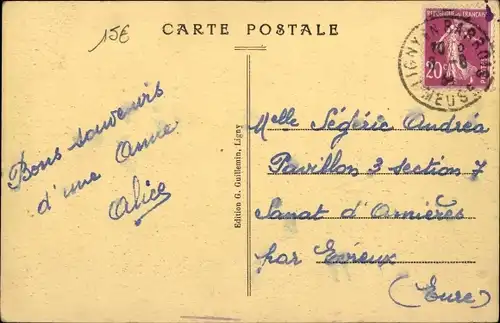 15€
CARTE POSTALE
REPUBLIQUE FRANÇAISE
20c
POSTES
LIGNY-EN-BARROIS
MEUSE
Bons souvenirs
d'une Amie
Alice
Edition G. Guillemin, Ligny
Melle Ségéric Andréa
Pavillon 3 section 7
Sanat d'Arnières
par Evreux
(Eure)